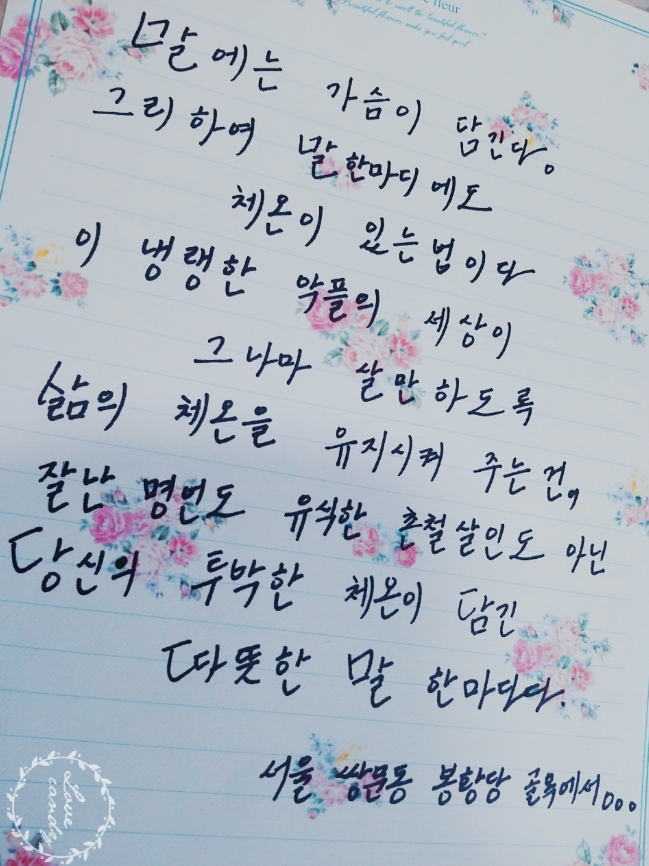 fleur
to smell the beautiful flowers."
Beautiful flowers make you feel good
말에는 가슴이 담긴다.
그리하여 말 한마디에도
체온이 있는 법이다
이 냉랭한 악플의 세상이
그나마 살만하도록
삶의 체온을 유지시켜 주는 건,
잘난 명언도 유식한 촌철살인도 아닌
당신의 투박한 체온이 담긴
따뜻한 말 한마디다.
서울 쌍문동 봉황당 골목에서...
Love candy